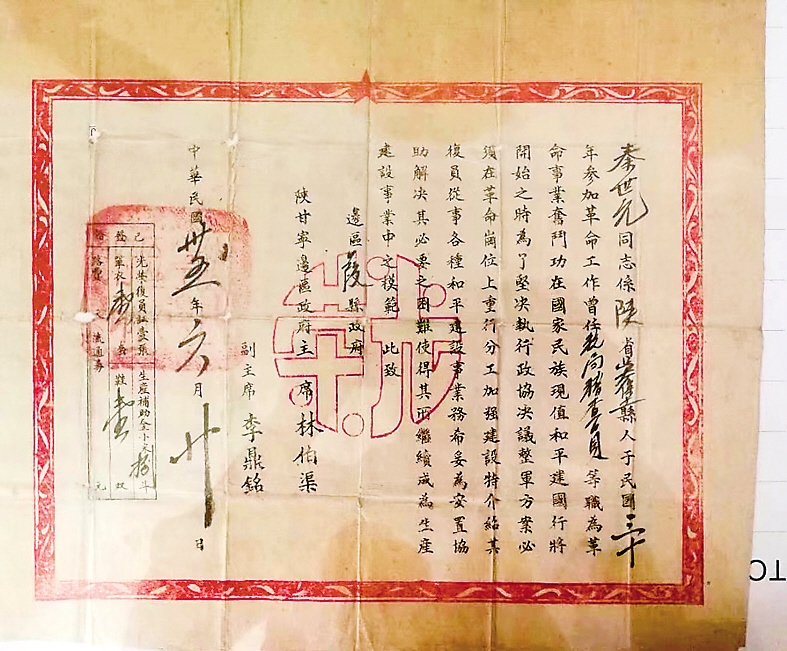 秦世元同志係陝省 縣人于民國三十
年參加革命工作曾任稅局稽查員等職為革
命事業奮鬥功在國家民族現值和平建國行將
開始之時為了堅決執行政協決議整軍方案必
須在革命崗位上重行分工加强建設特介紹其
復員從事各種和平建設事業務希妥為安置協
助解决其必要之困難使得其 繼續成為生産
建設事業中之模範 此致
邊區葭縣政府
陝甘寧邊區政府主席林伯渠
副主席李鼎銘
中華民國卅五年六月廿日
已 發 給
洗 復員証壹張 生産補助金小米 拾斗
單衣壹套 鞋壹双
路費 流通券 元